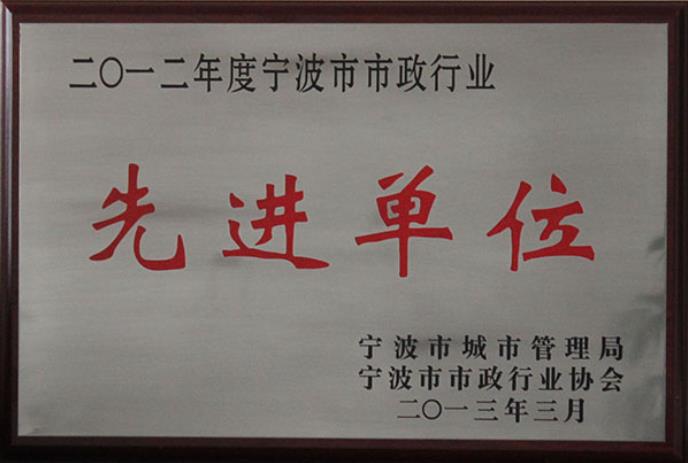 二〇一二年度宁波市市政行业
先进单位
宁波市城市管理局
宁波市市政行业协会
二〇一三年三月